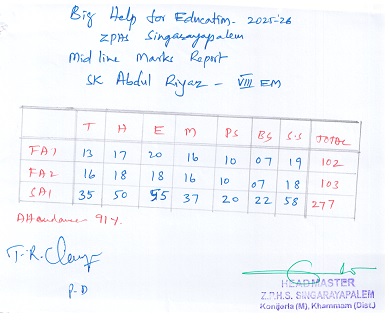 Big Help for Education - 2025-26
ZPHS Singarayapalem
Mid line Marks Report
SK Abdul Riyaz - VIII EM
T H E M PS BS S.S TOTAL
FA1 13 17 20 16 10 07 19 102
FA2 16 18 18 16 10 07 18 103
SA1 35 50 55 37 20 22 58 277
Attendance 91%
P.D
HEADMASTER
Z.P.H.S. SINGARAYAPALEM
Konijerla (M), Khammam (Dist.)